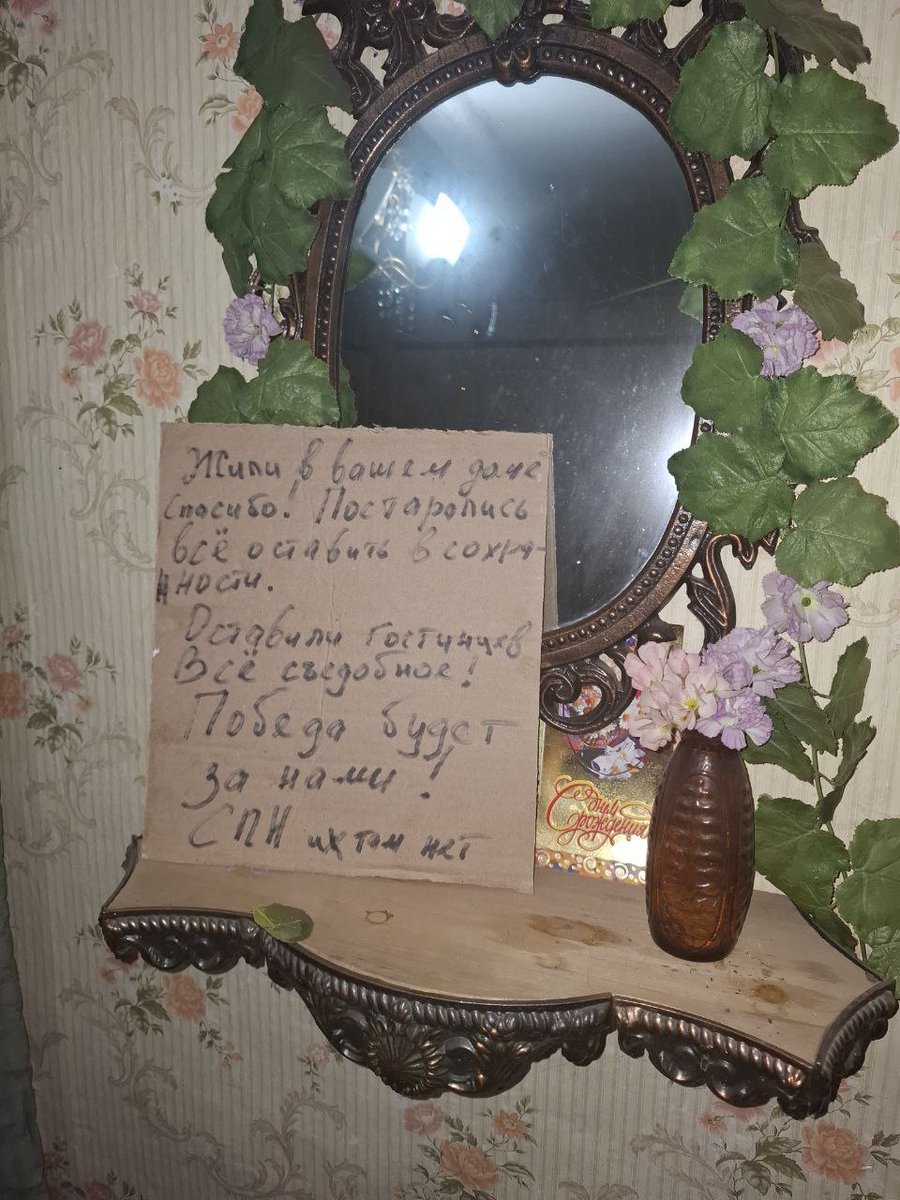 Жили в вашем доме
Спасибо! Постарались
всё оставить в сохра-
нности.
Оставили гостинцев
Всё съедобное!
Победа будет
за нами!
СПН их там нет
С днём
рождения